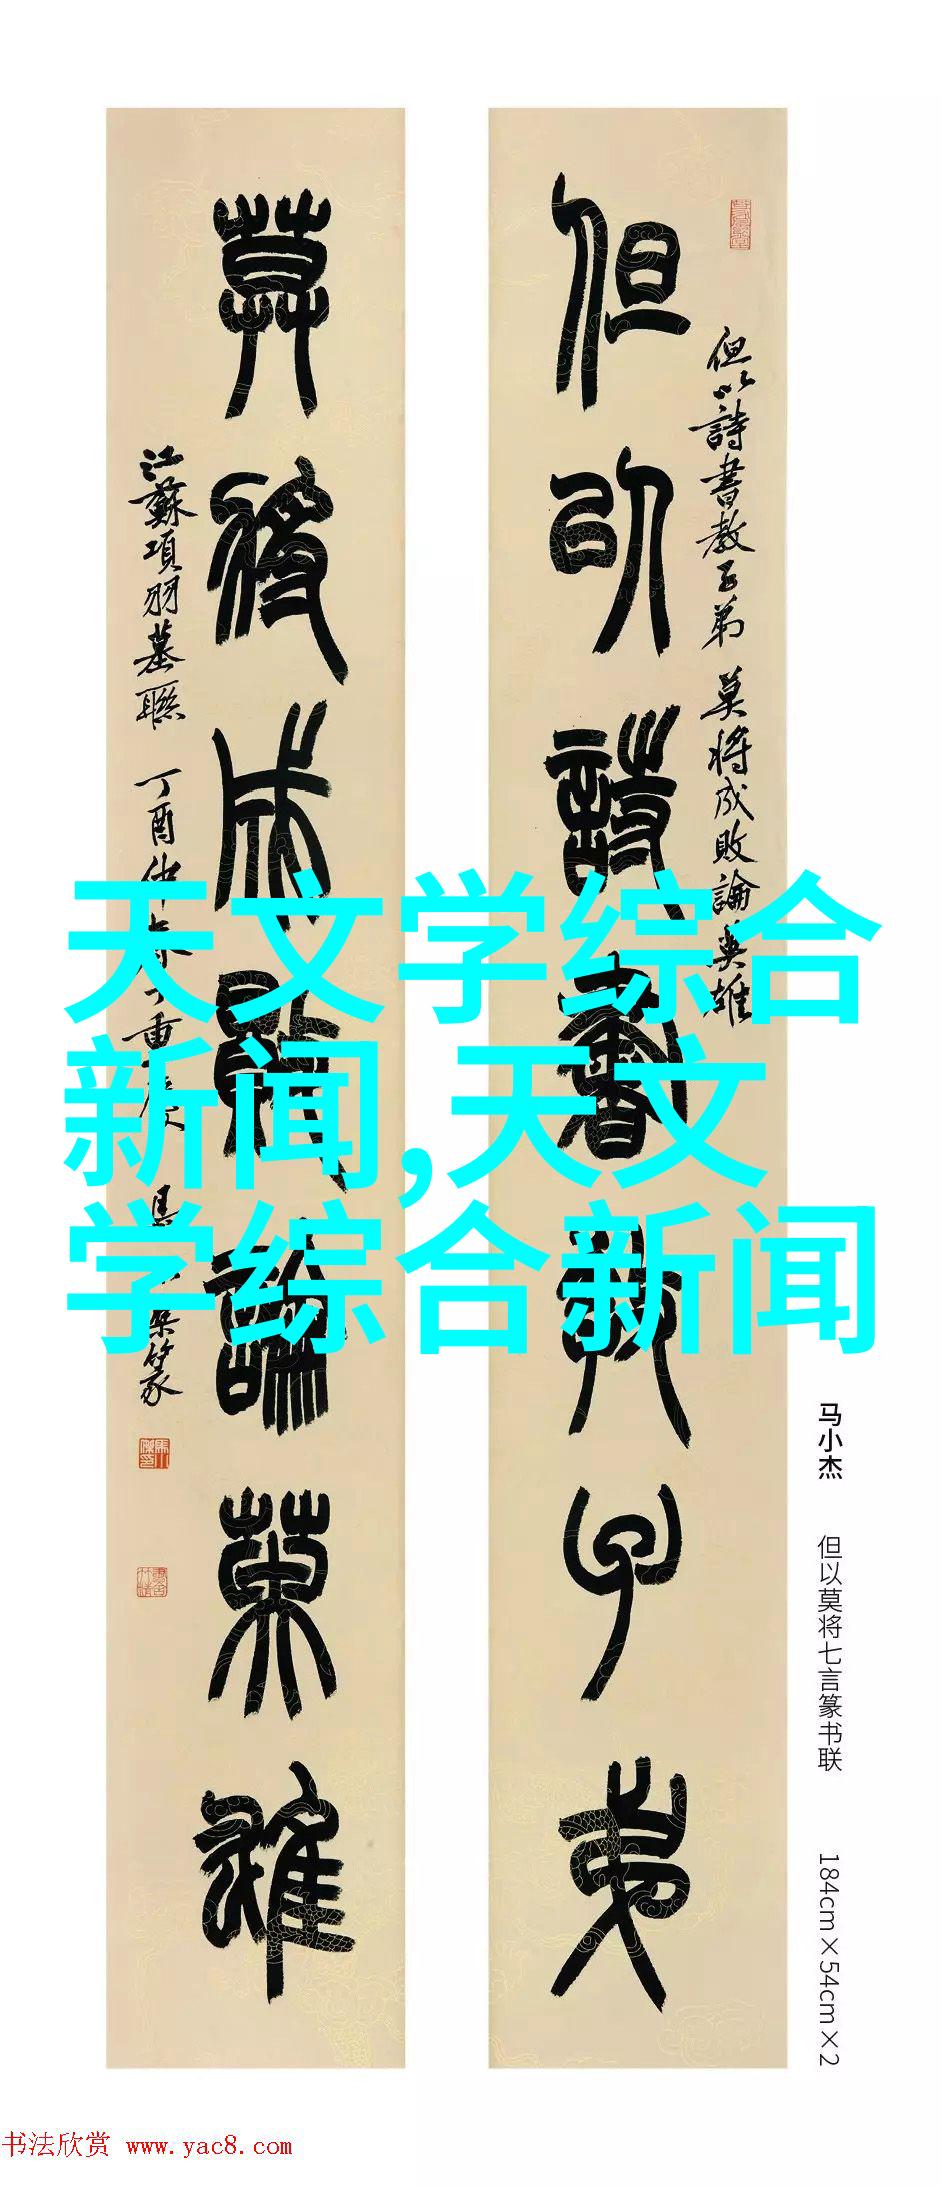 但以詩書教子弟 莫將成敗論英雄
但以詩書教子弟
莫將成敗論英雄
江蘇項羽墓聯 丁酉仲春 重 篆
天文学综合
新闻,天文
学综合新闻
马小杰 但以莫将七言篆书联 184cm×54cm×2
书法欣赏 www.yac8.com